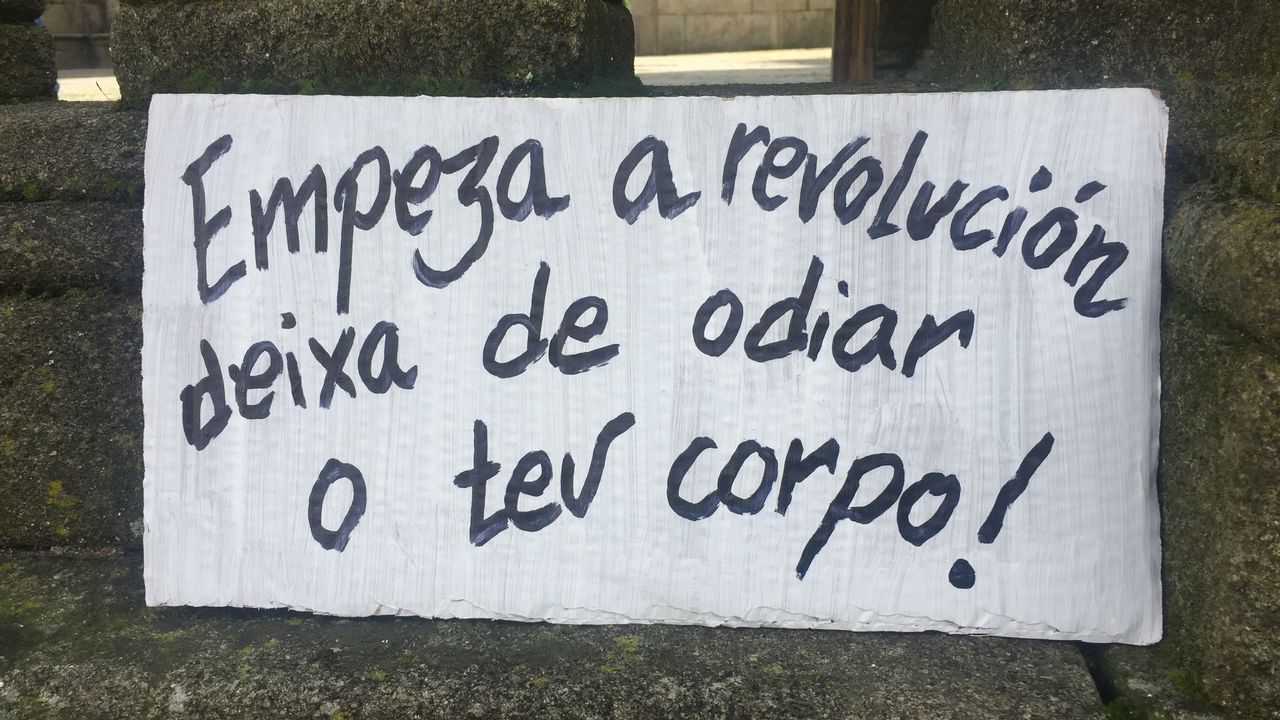 Empeza a revolución
deixa de odiar
o teu corpo!